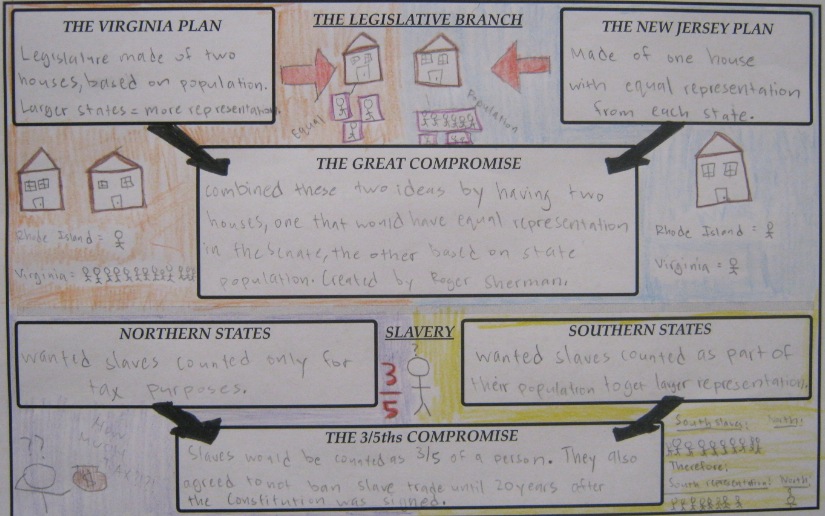 THE VIRGINIA PLAN
Legislature made of two
houses, based on population.
Larger states = more representation.
THE LEGISLATIVE BRANCH
Equal
Population
THE NEW JERSEY PLAN
Made of one house
with equal representation
from each state.
THE GREAT COMPROMISE
combined these two ideas by having two
houses, one that would have equal representation
in the Senate, the other based on state
population. Created by Roger Sherman.
Rhode Island =
Virginia =
Rhode Island =
Virginia =
NORTHERN STATES
wanted slaves counted only for
tax purposes.
SLAVERY
?
3
5
SOUTHERN STATES
wanted slaves counted as part of
their population to get larger representation.
THE 3/5ths COMPROMISE
Slaves would be counted as 3/5 of a person. They also
agreed to not ban slave trade until 20 years after
the Constitution was signed.
??
HOW
MUCH
South slaves: North:
Therefore:
South representation: North: